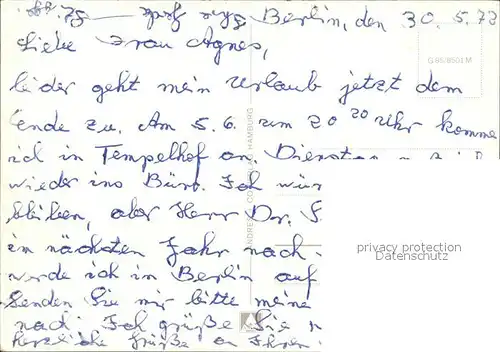 Berlin, den 30. 5. 73
Liebe Frau Agnes,
leider geht mein Urlaub jetzt dem
Ende zu. Am 5. 6. um 20 20 Uhr komme
ich in Tempelhof an. Dienstag
wieder ins Büro. Ich wür
bleiben, aber Herr Dr. S
im nächsten Jahr nach
werde ich in Berlin auf
Senden Sie mir bitte meine
nach. Ich grüße Sie
herzliche Grüße an Ihren
HAMBURG
privacy protection
Datenschutz